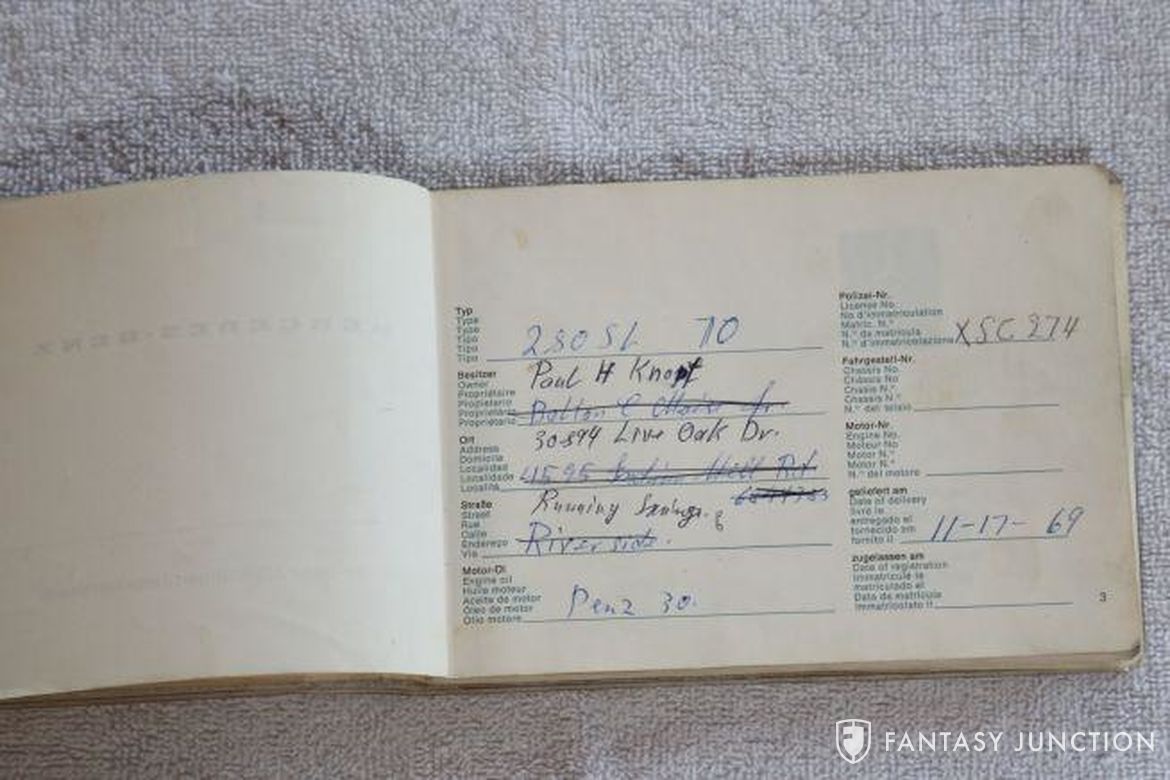 Typ
Type
Type
Tipo
Tipo
Tipo
280 SL 70
Besitzer
Owner
Propriétaire
Propietario
Proprietário
Proprietario
Paul H Knopf
Ort
Address
Domicile
Localidad
Localidade
Località
30894 Live Oak Dr.
4595 Rd
Straße
Street
Rue
Calle
Endereço
Via
Running Springs.
Riverside.
Motor-Öl
Engine oil
Huile moteur
Aceite de motor
Óleo de motor
Olio motore
Penz 30.
Polizei-Nr.
License No.
No d'immatriculation
Matríc. N.°
N.° da matrícula
N.° d'immatricolazione
XSC 274
Fahrgestell-Nr.
Chassis No.
Châssis No
Chasis N.°
Chassis N.°
N.° del telaio
Motor-Nr.
Engine No.
Moteur No
Motor N.°
Motor N.°
N.° del motore
geliefert am
Date of delivery
livré le
entregado el
fornecido em
fornito il
11-17-69
zugelassen am
Date of registration
immatriculé le
matriculado el
Data da matrícula
immatricolato il
3
MERCEDES-BENZ
FANTASY JUNCTION